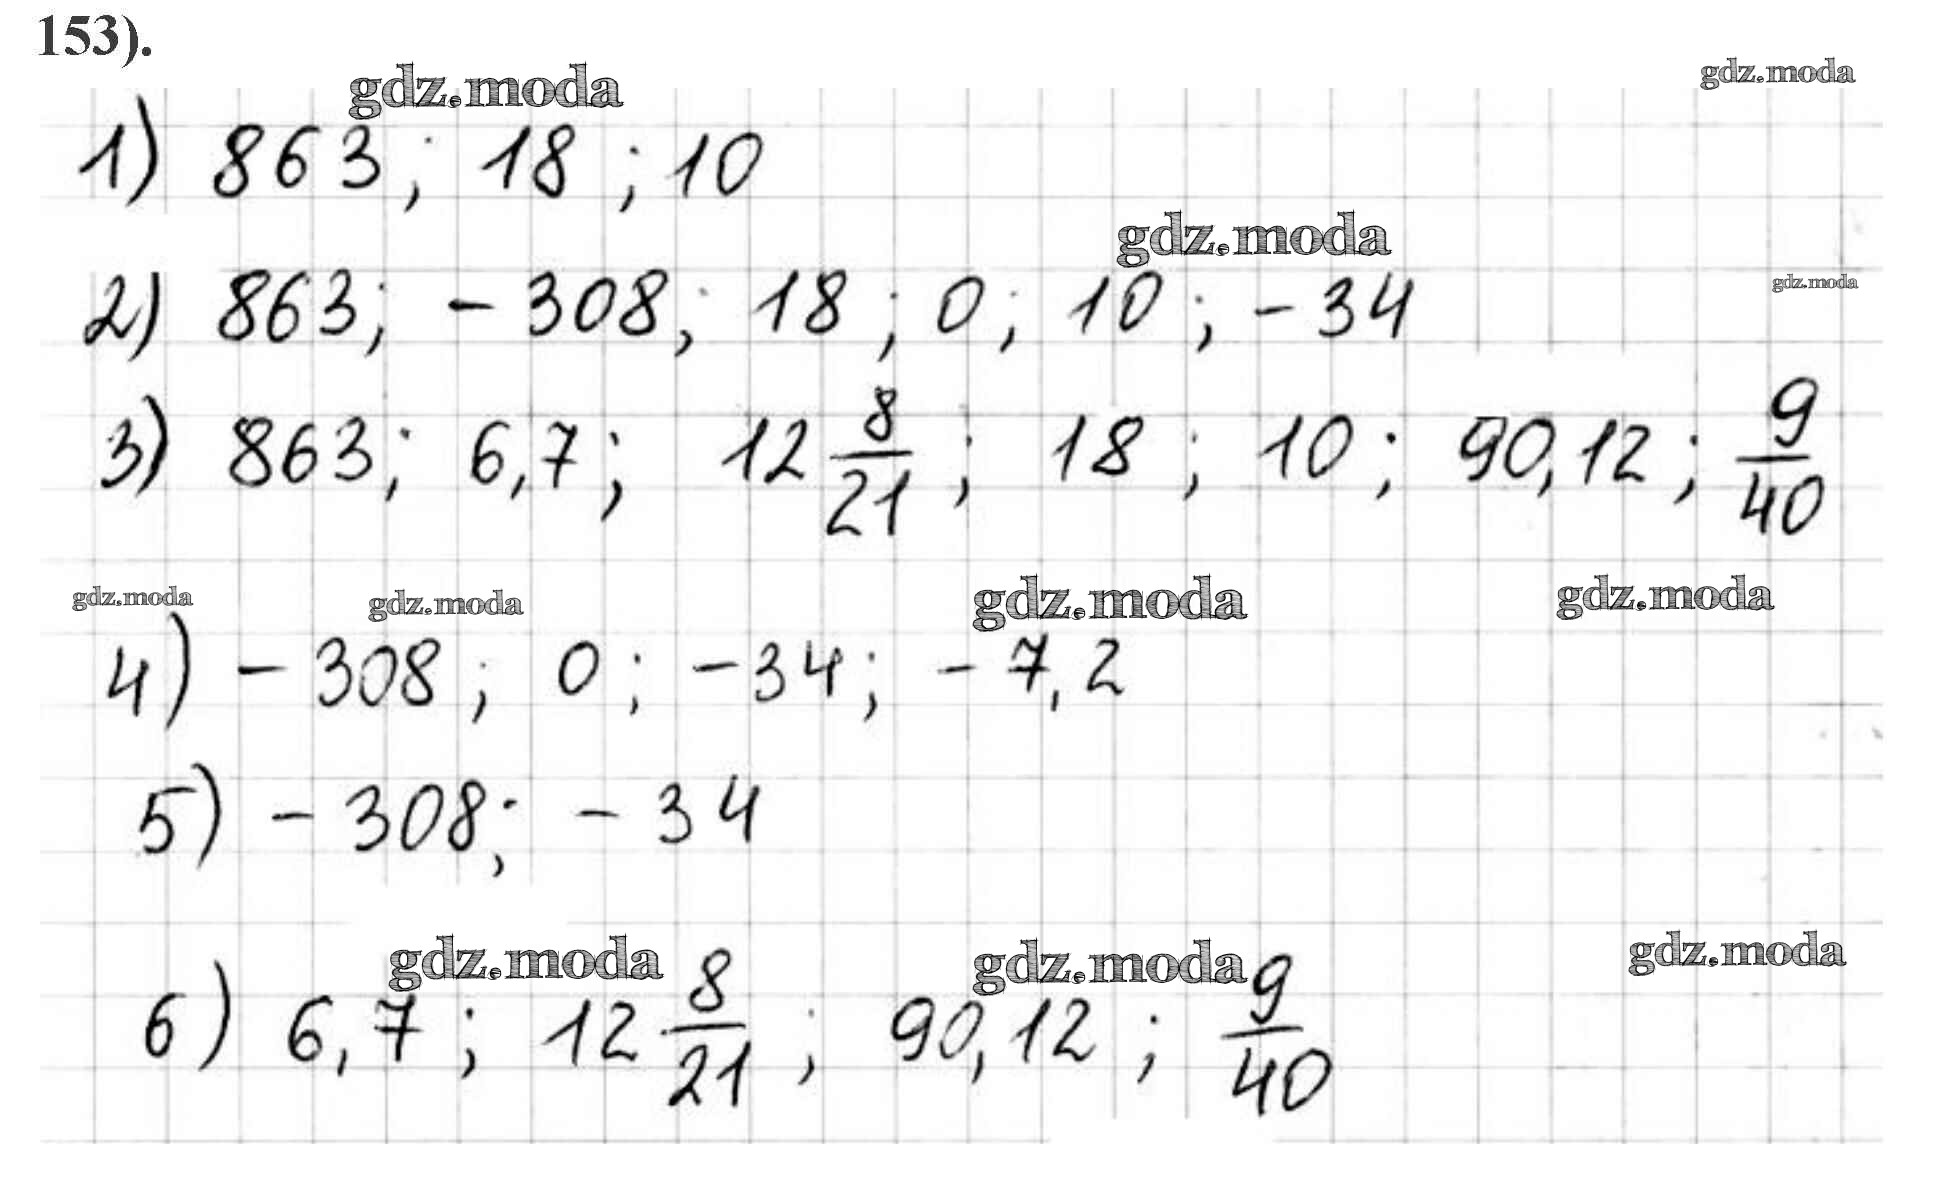 153).
gdz.moda
gdz.moda
1) 863; 18; 10
gdz.moda
2) 863; - 308; 18; 0; 10; - 34
gdz.moda
3) 863; 6,7; 12 8/21; 18; 10; 90,12; 9/40
gdz.moda gdz.moda gdz.moda gdz.moda
4) - 308; 0; - 34; - 7,2
5) - 308; - 34
gdz.moda gdz.moda gdz.moda
6) 6,7; 12 8/21; 90,12; 9/40